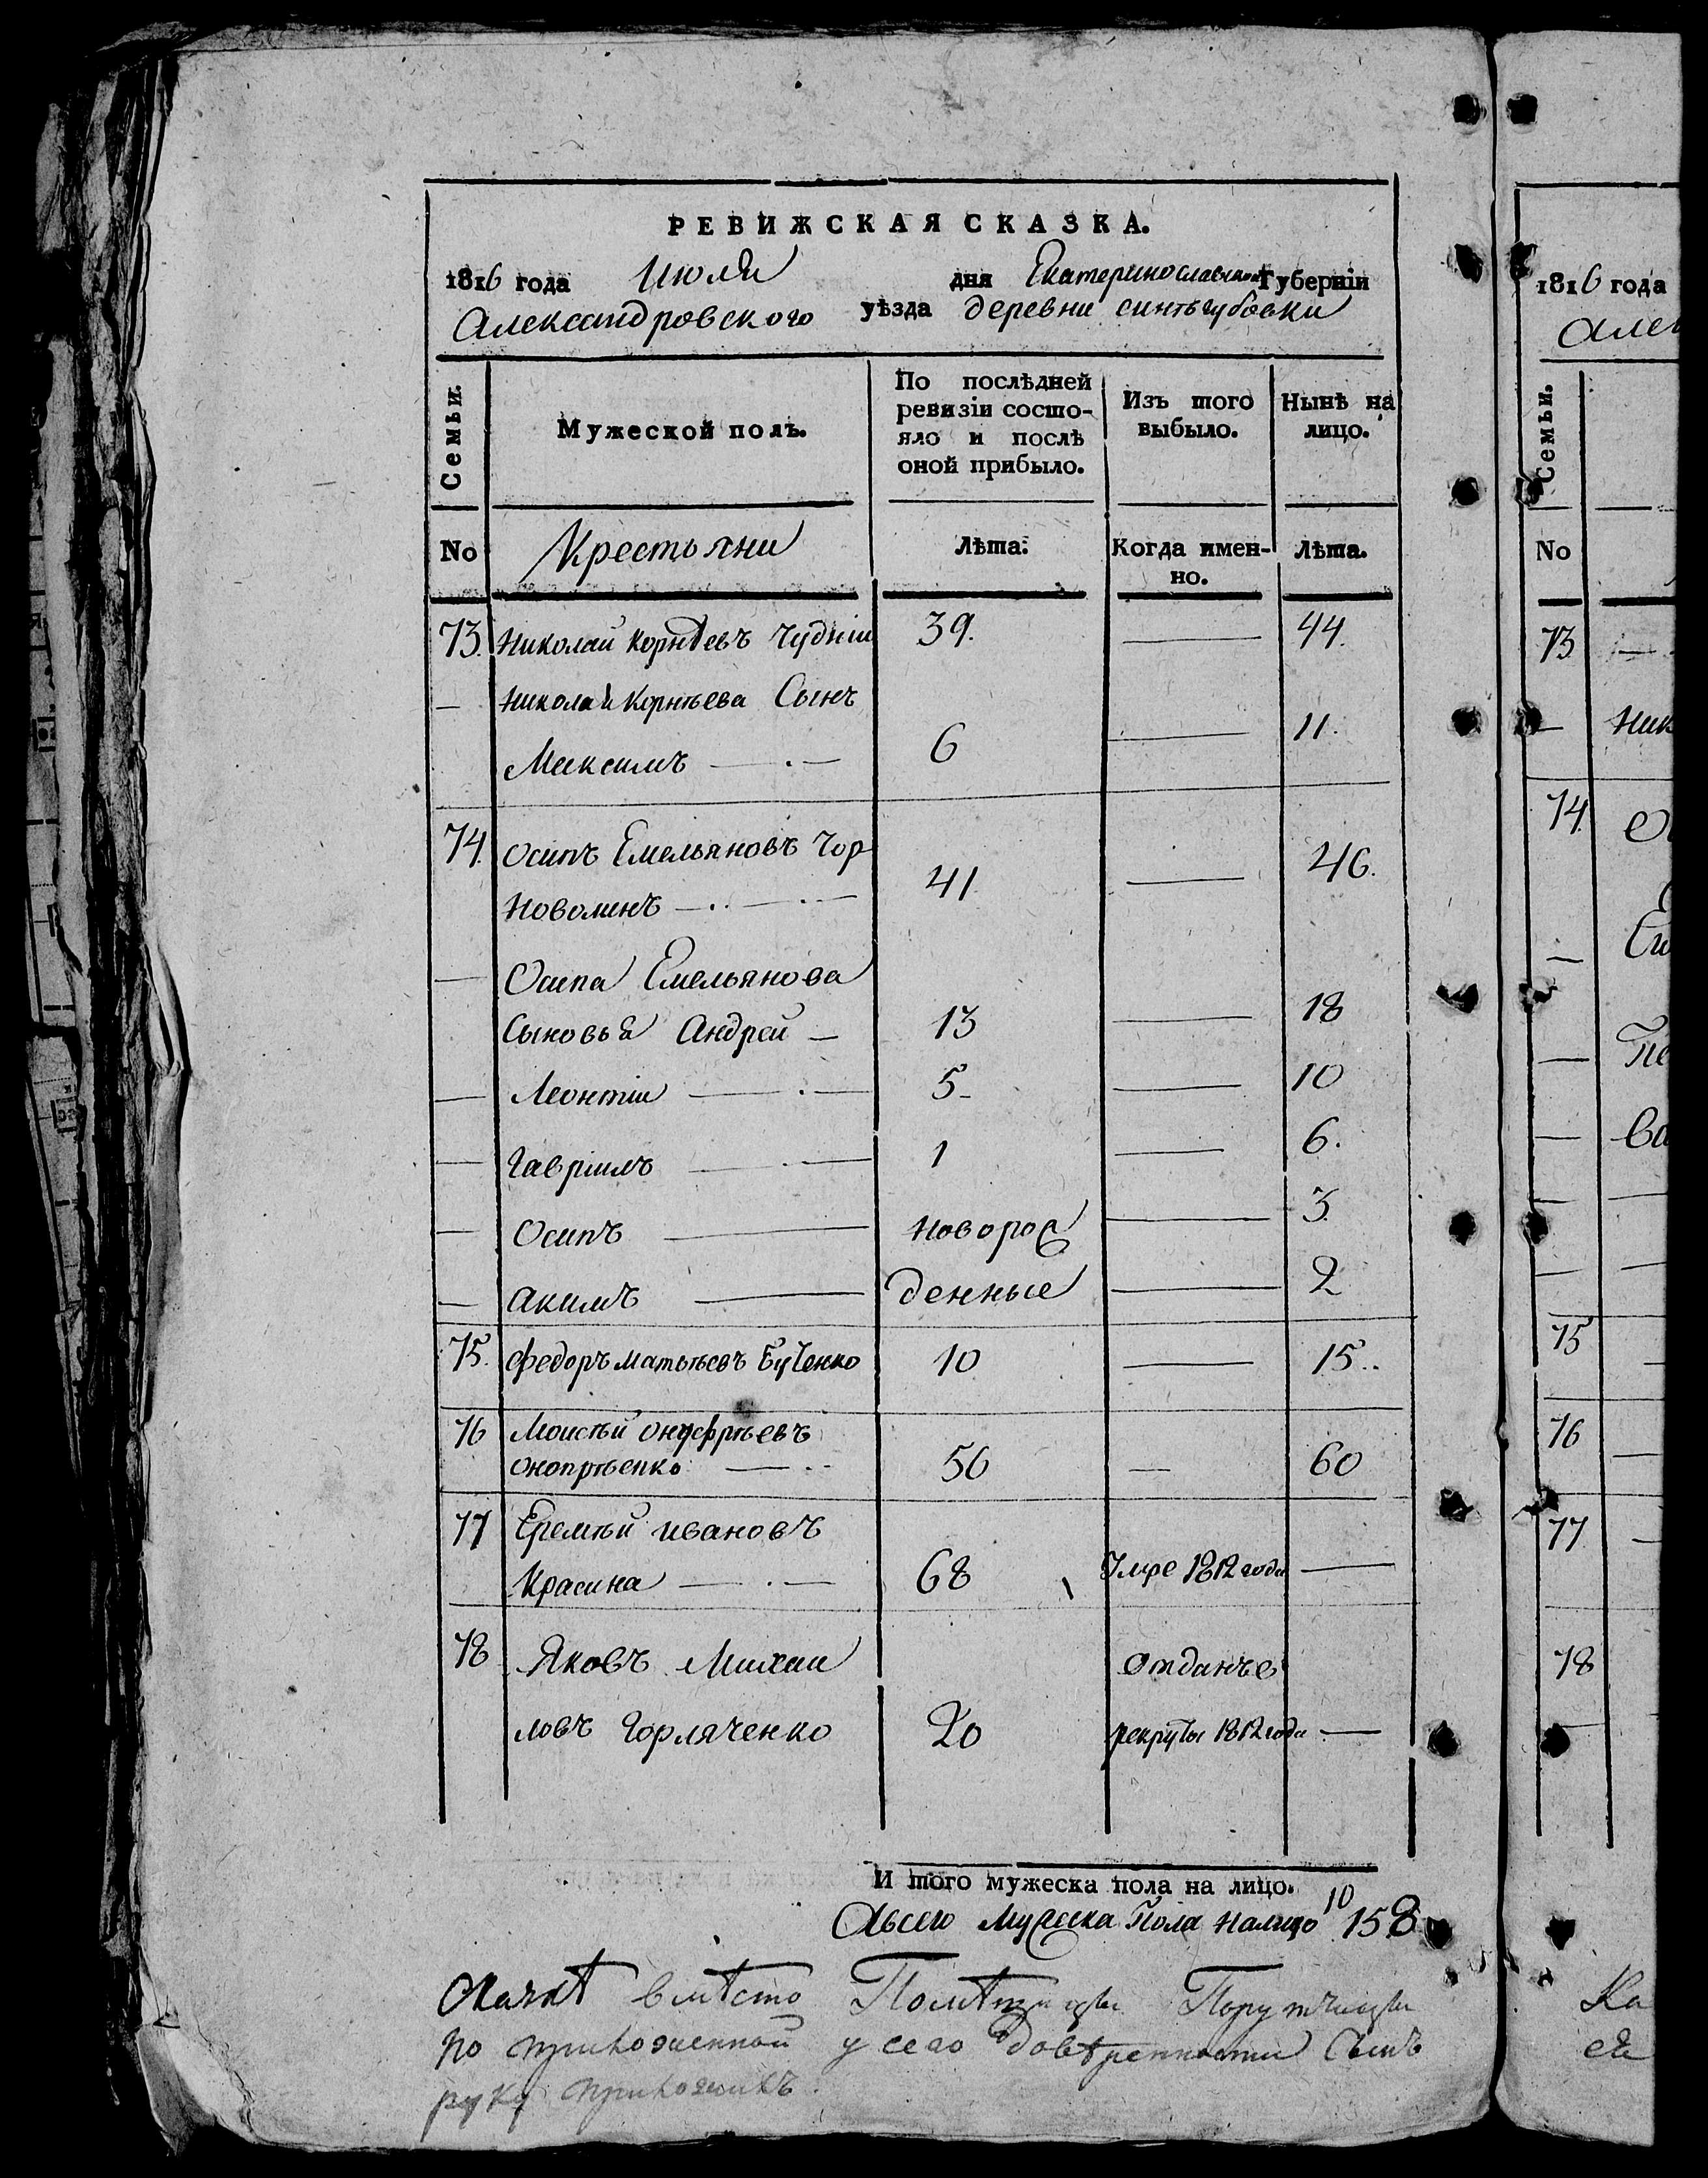 РЕВИЖСКАЯ СКАЗКА.
1816 года Июля дня Екатеринославской Губерніи
Александровского уѣзда деревни синѣгубовки
Семьи. Мужеской полъ. По послѣдней ревизіи состояло и послѣ оной прибыло. Изъ того выбыло. Нынѣ на лицо.
No Крестьяни Лѣта. Когда имен-но. Лѣта.
73. Николай Корнѣевъ Чудніи 39. — 44.
— Николай Корнѣева Сынъ
Максимъ — 6 — 11.
74. Осипъ Емельяновъ Чор
Новолинъ — 41 — 46.
— Осипа Емельянова
Сыновья Андрей — 13 — 18
— Леонтіи — 5 — 10
— Гавріилъ — 1 — 6.
— Осипъ — новорож — 3.
— Акимъ — денные — 2
75. Федоръ Матвѣевъ Бученко 10 — 15..
76 Моисѣй Онуфрѣевъ
Онопрѣенко — 56 — 60
77 Еремѣй Ивановъ
Красина — 68 Умре 1812 года —
78 Яковъ Михаи Отданъ в
ловъ Горляченко 20 рекруты 1812 года —
И того мужеска пола на лицо. 10
Авсего Мужеска Пола налицо 158
Сказкѣ вмѣсто Помѣщицы Порутчицы
по приложенной у сего довѣренности Сынъ
руку приложилъ.
1816 года
Алек
Семьи.
No
73 —
— Ник
74
—
— Пе
— Ва
—
—
75 —
76 —
77 —
78
Ка
ея